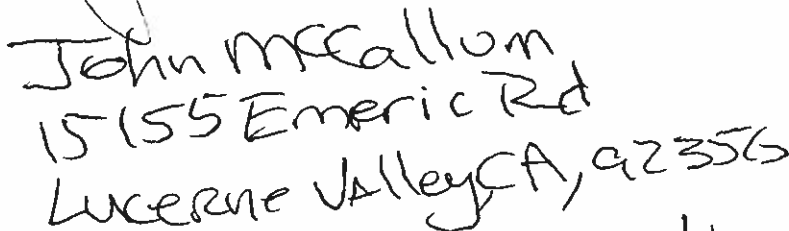 John McCallum
15155 Emeric Rd
Lucerne Valley, CA, 92356